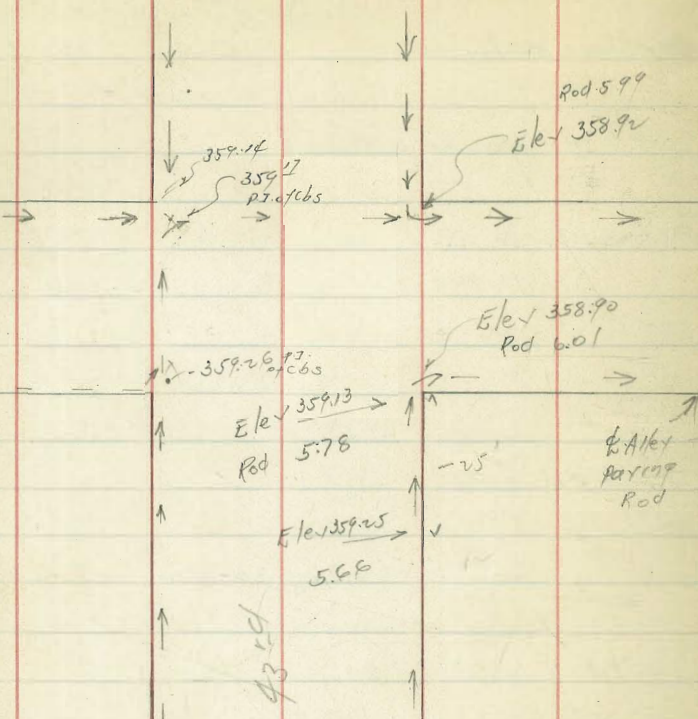 Rod 5.99
Elev 358.92
359.14
359.17
P.I. of Cbs
Elev 358.90
Rod 6.01
359.26 P.I.
of Cbs
Elev 359.13
Rod 5.78
25'
℄ Alley
Paving
Rod
Elev 359.25
5.66
43rd